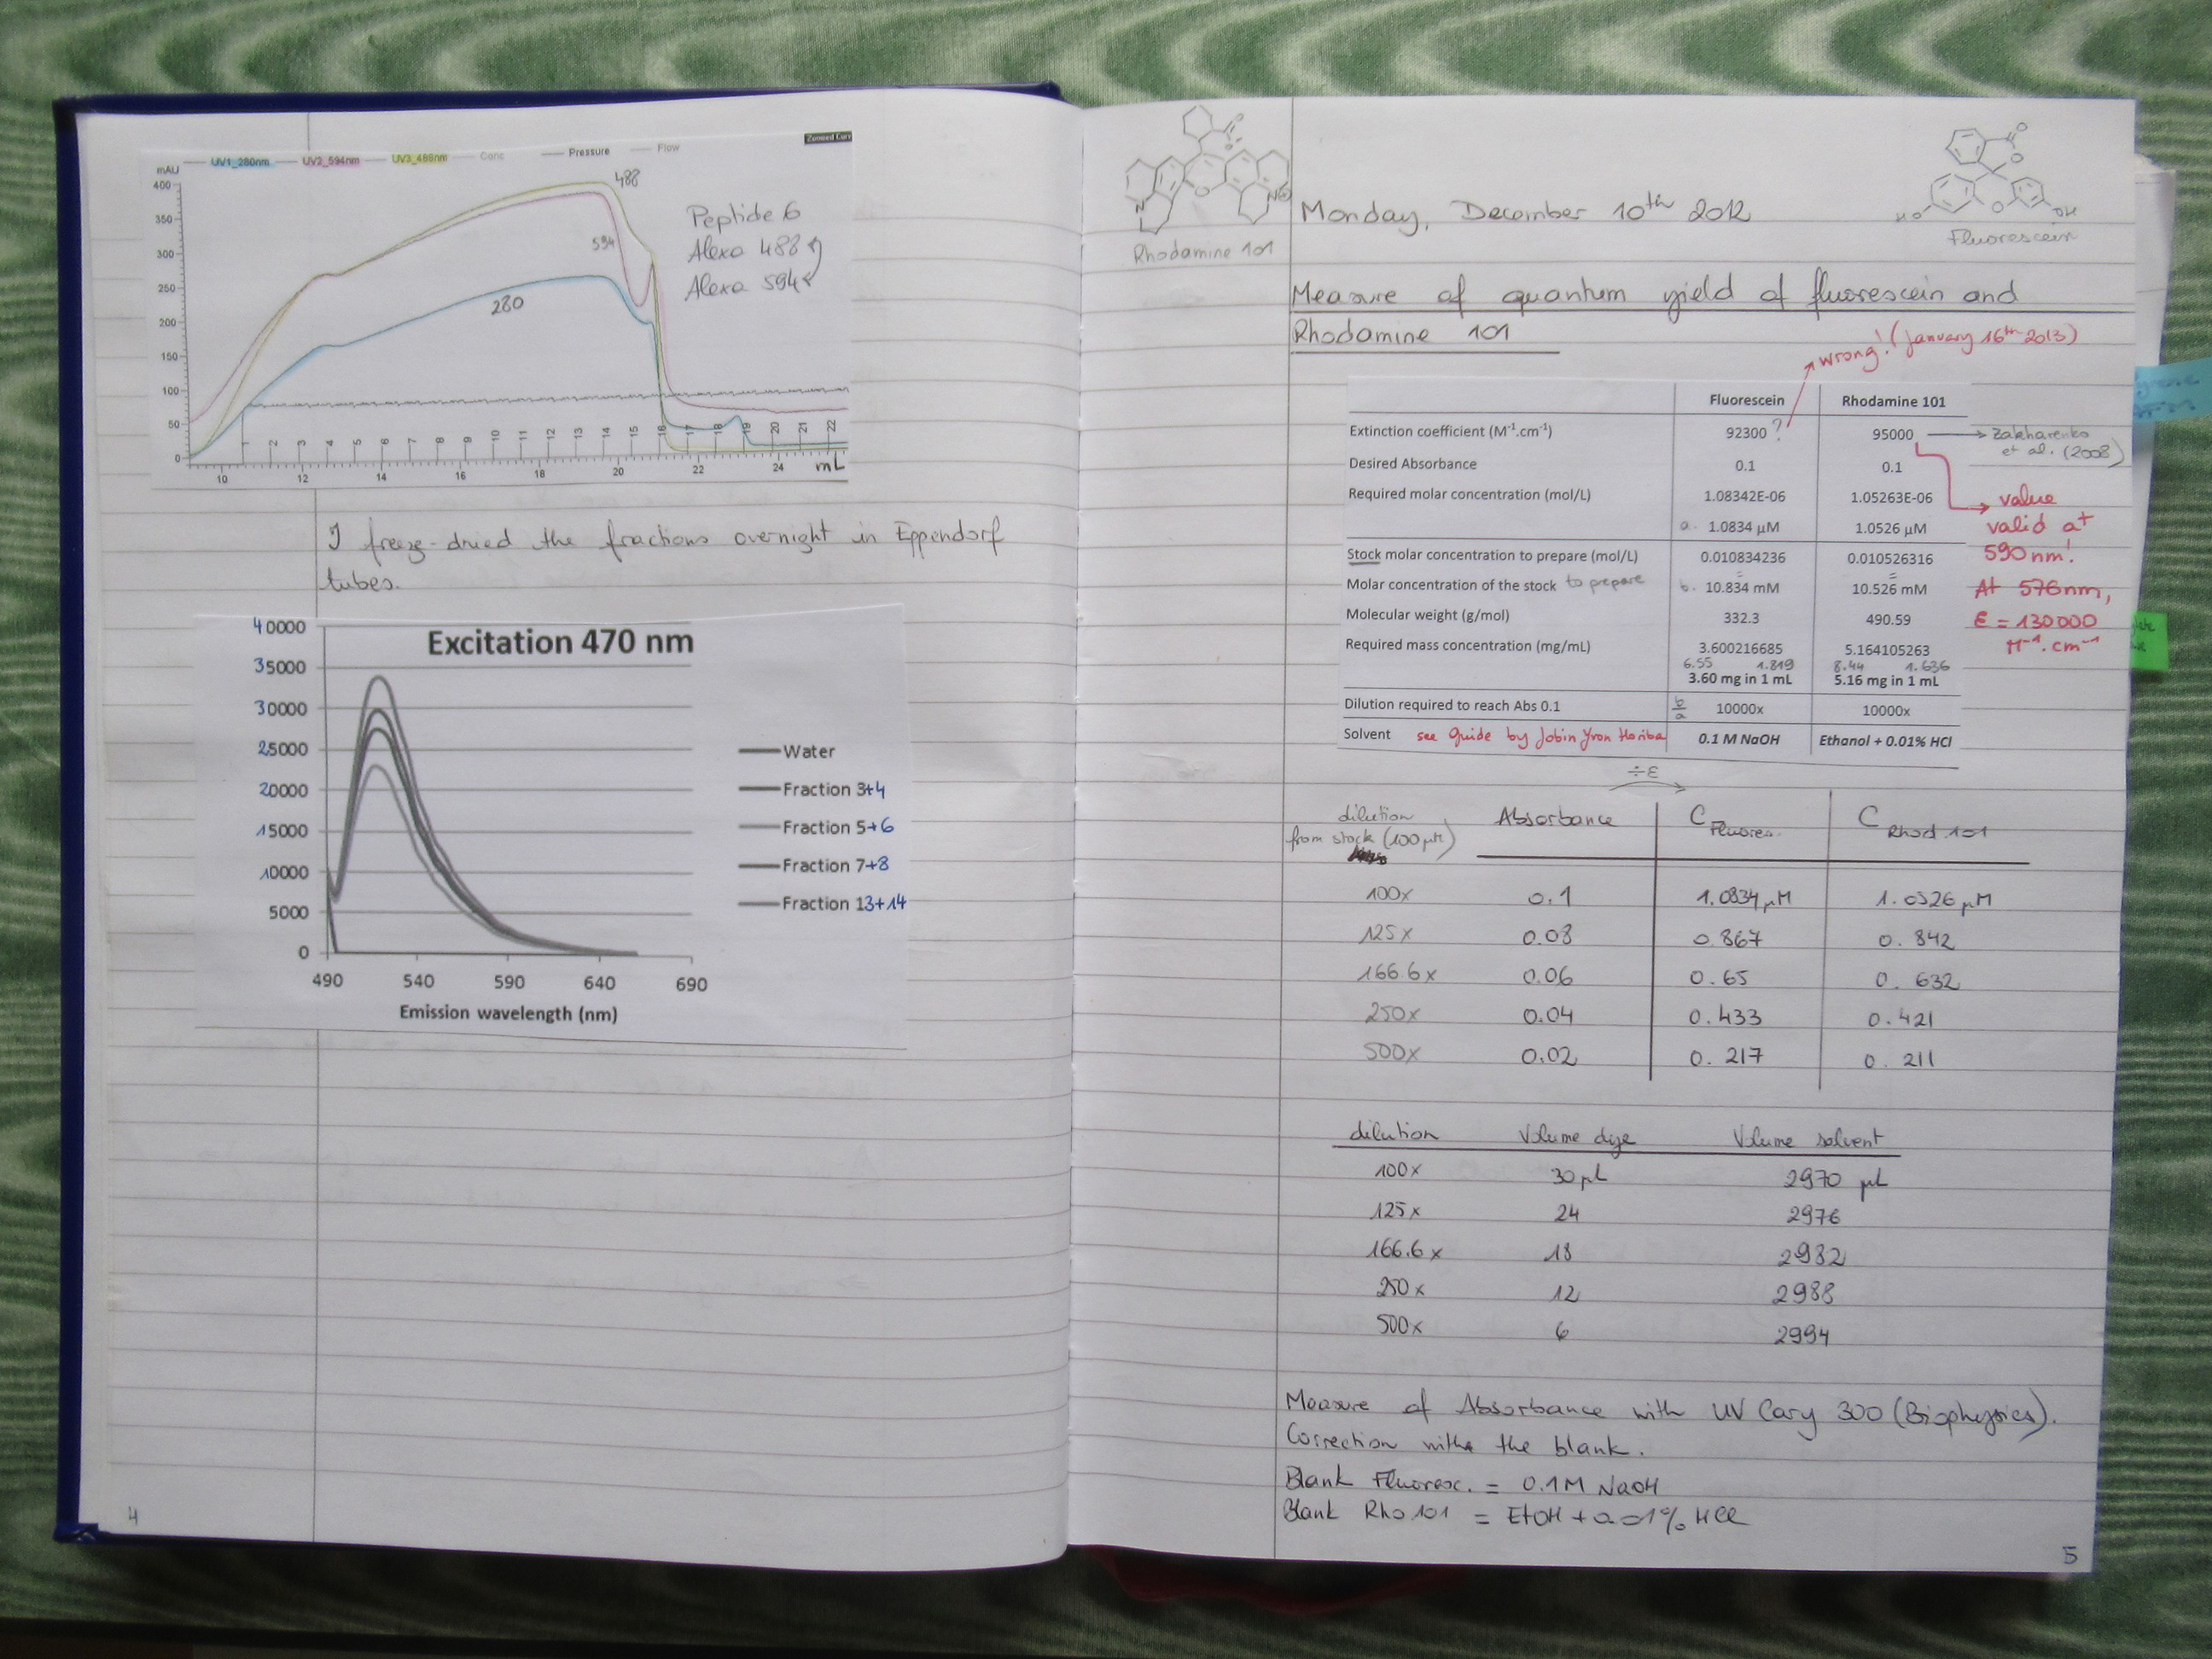 Zoomed Curv
UV1_280nm UV2_594nm UV3_488nm Conc Pressure Flow
mAU
400
350
300
250
200
150
100
50
0
488
594
280
Peptide 6
Alexa 488
Alexa 594
1 2 3 4 5 6 7 8 9 10 11 12 13 14 15 16 17 18 19 20 21 22
10 12 14 16 18 20 22 24 mL
I freeze-dried the fractions overnight in Eppendorf
tubes.
Excitation 470 nm
40000
35000
30000
25000
20000
15000
10000
5000
0
490 540 590 640 690
Emission wavelength (nm)
Water
Fraction 3+4
Fraction 5+6
Fraction 7+8
Fraction 13+14
4
N
O
O
O
N
Rhodamine 101
O
O
HO O OH
Fluorescein
Monday, December 10th 2012
Measure of quantum yield of fluorescein and
Rhodamine 101
wrong! (January 16th 2013)
Fluorescein Rhodamine 101
Extinction coefficient (M-1.cm-1) 92300 ? 95000 → Zakharenko
et al. (2008)
Desired Absorbance 0.1 0.1
Required molar concentration (mol/L) 1.08342E-06 1.05263E-06
a. 1.0834 µM 1.0526 µM
Stock molar concentration to prepare (mol/L) 0.010834236 0.010526316
Molar concentration of the stock to prepare b. 10.834 mM 10.526 mM
Molecular weight (g/mol) 332.3 490.59
Required mass concentration (mg/mL) 3.600216685 5.164105263
6.55 1.819 8.44 1.636
3.60 mg in 1 mL 5.16 mg in 1 mL
Dilution required to reach Abs 0.1 b/a 10000x 10000x
Solvent see Guide by Jobin Yvon Horiba 0.1 M NaOH Ethanol + 0.01% HCl
value
valid at
590 nm!
At 576nm,
ε = 130000
M-1.cm-1
÷ε
dilution Absorbance C Fluores. C Rhod 101
from stock (100µM)
100x 0.1 1.0834 µM 1.0526 µM
125x 0.08 0.867 0.842
166.6x 0.06 0.65 0.632
250x 0.04 0.433 0.421
500x 0.02 0.217 0.211
dilution Volume dye Volume solvent
100x 30 µL 2970 µL
125x 24 2976
166.6x 18 2982
250x 12 2988
500x 6 2994
Measure of Absorbance with UV Cary 300 (Biophysics).
Correction with the blank.
Blank Fluoresc. = 0.1M NaOH
Blank Rho 101 = EtOH + 0.01% HCl
5